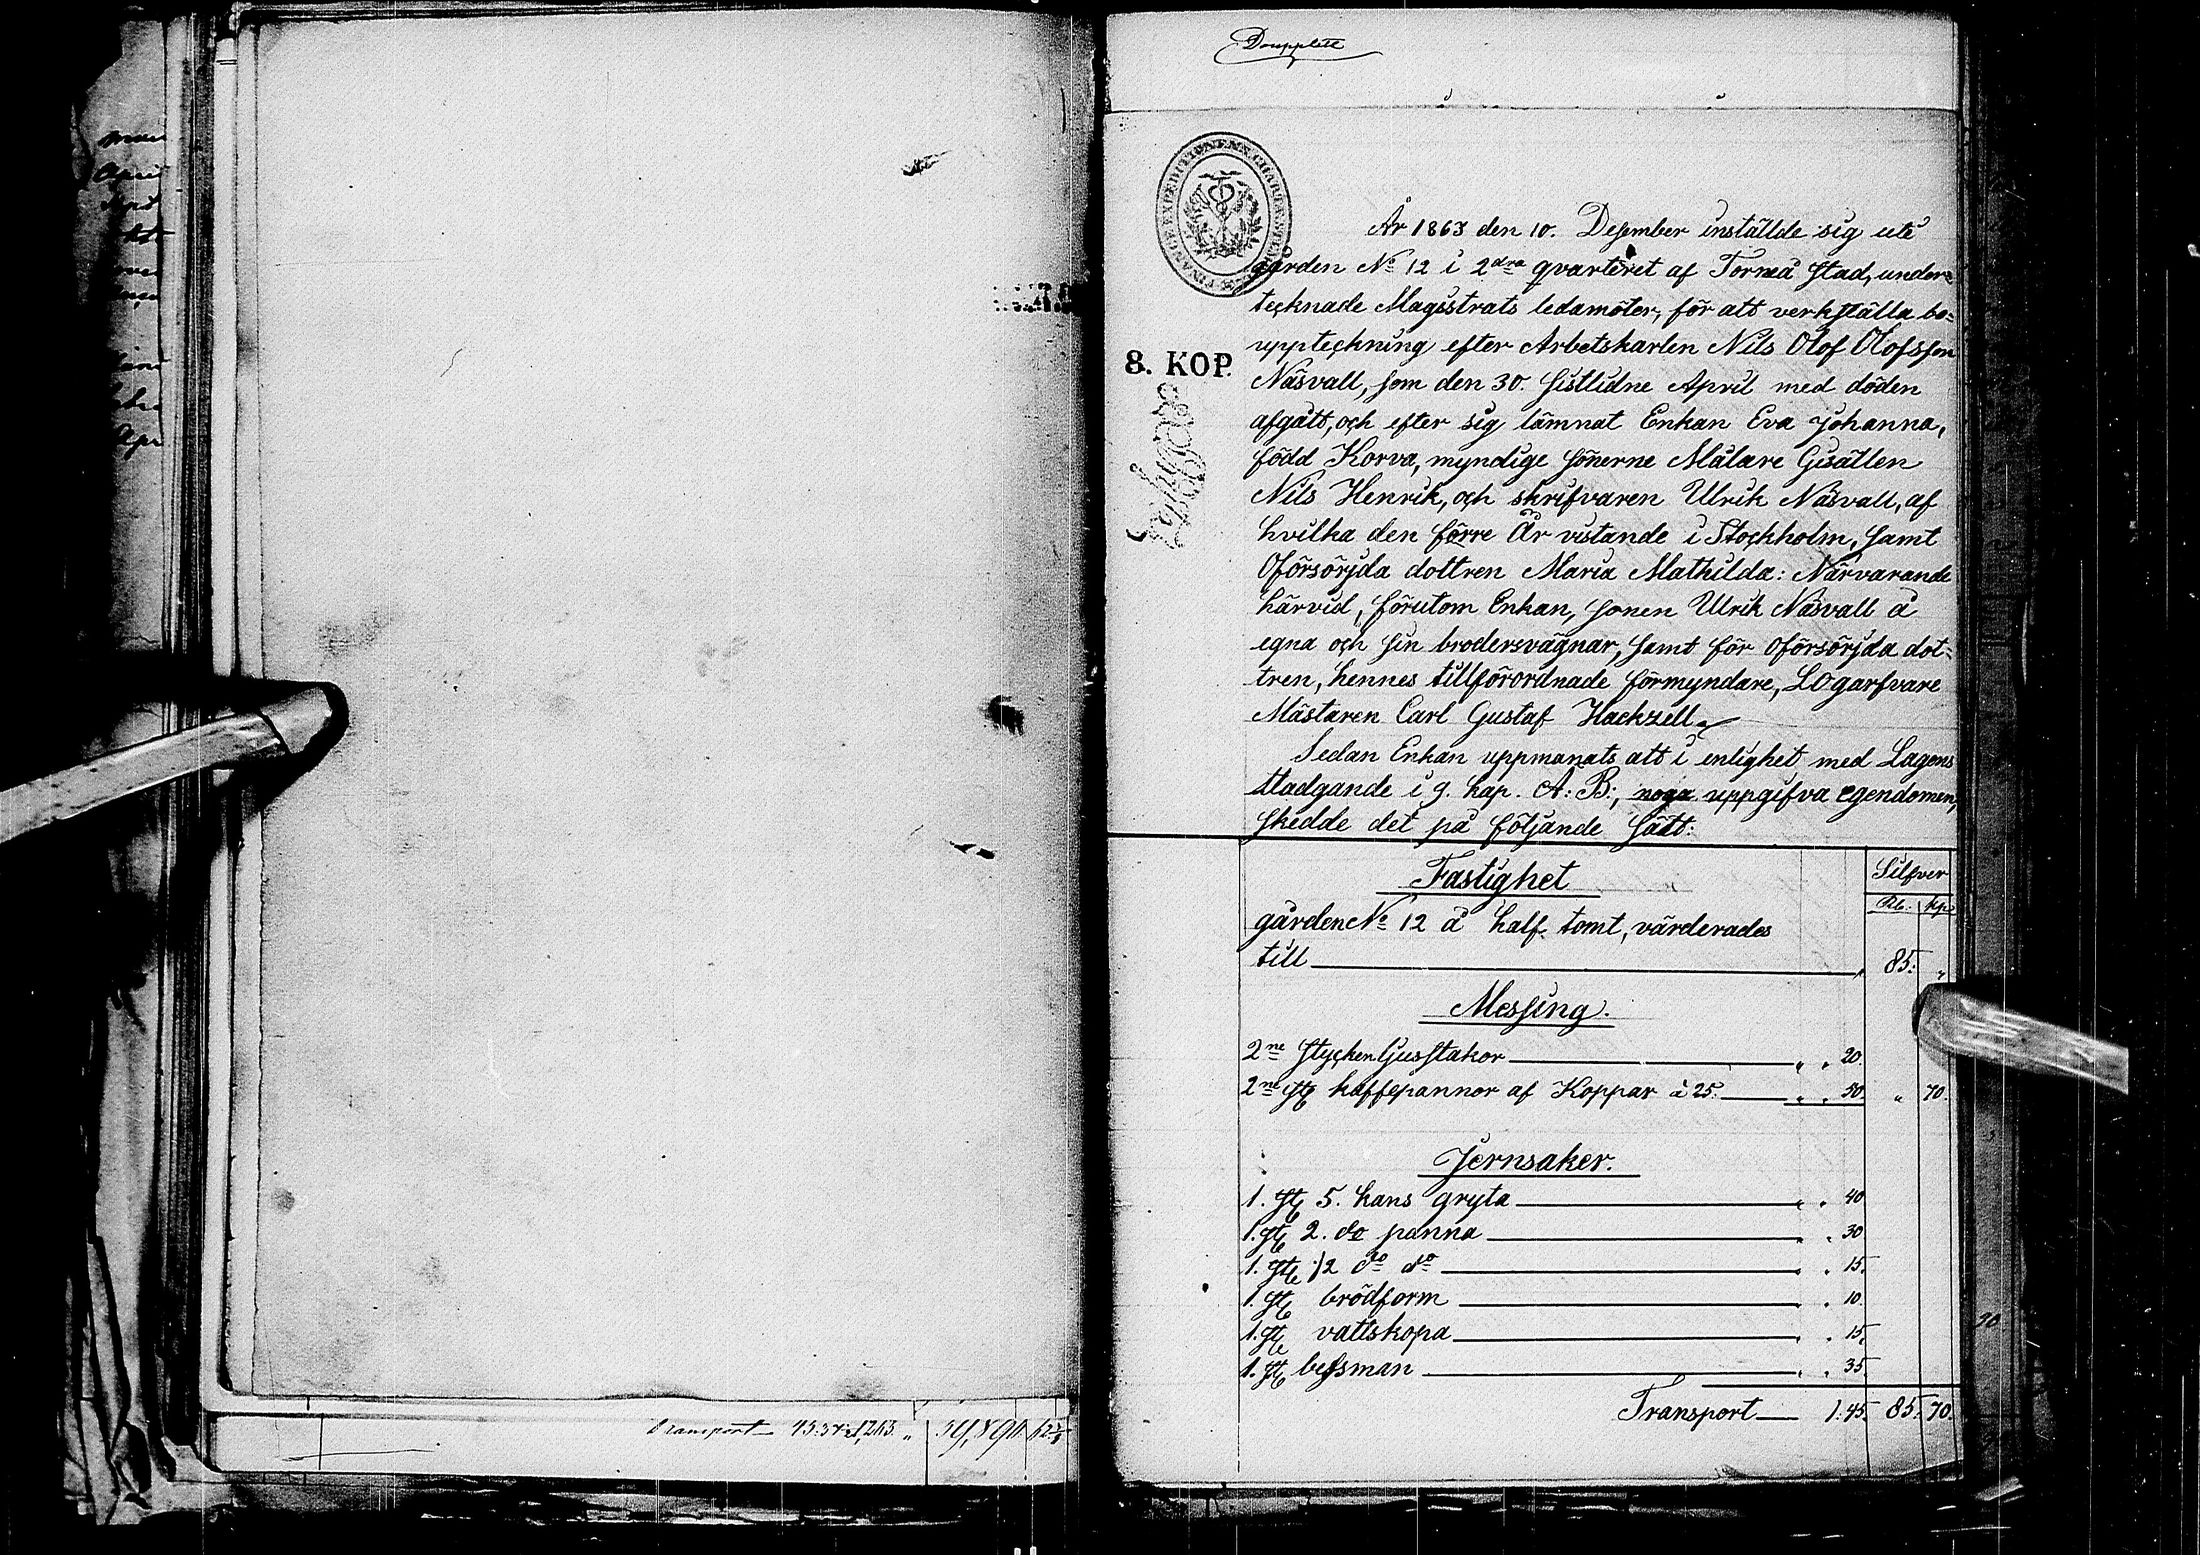 Doupplett
År 1863 den 10. Desember instälde sig uti
gården No 12 i 2dra qvarteret af Torneå stad, under=
tecknade Magistrats ledamöter, för att verkställa bo=
uppteckning efter Arbetskarlen Nils Olof Olofsson
Näsvall, som den 30. sistlidne April med döden
afgått, och efter sig lämnat Enkan Eva Johanna,
född Korva, myndige sönerne Målare Gisällen
Nils Henrik, och skrifvaren Ulrik Näsvall, af
hvilka den förre Är vistande i Stockholm, samt
Oförsörjda dottren Maria Mathilda: Närvarande
härvid, förutom Enkan, sonen Ulrik Näsvall å
egna och sin brodersvägnar, samt för Oförsörjda dot=
tren, hennes tillförordnade förmyndare, Logarfvare
Mästaren Carl Gustaf Hackzell.
Sedan Enkan uppmanats att i enlighet med Lagens
stadgande i 9. kap. A: B:, noga uppgifva egendomen,
skedde det på följande sätt:
8. KOP.
Fastighet
Silfver
Rb: kp
gården No 12 å half tomt, värderades
till 85. "
Messing.
2ne stycken Ljusstakor " " 20.
2ne st kaffepannor af Koppar à 25. " " 50. " 70.
Jernsaker.
1. st 5. kans gryta " " 40
1. st 2. do panna " " 30
1. st 1/2 do do " " 15.
1. st brödform " " 10.
1. st vattskopa " " 15.
1. st bessman " " 35
Transport 1.45. 85. 70.
Transport